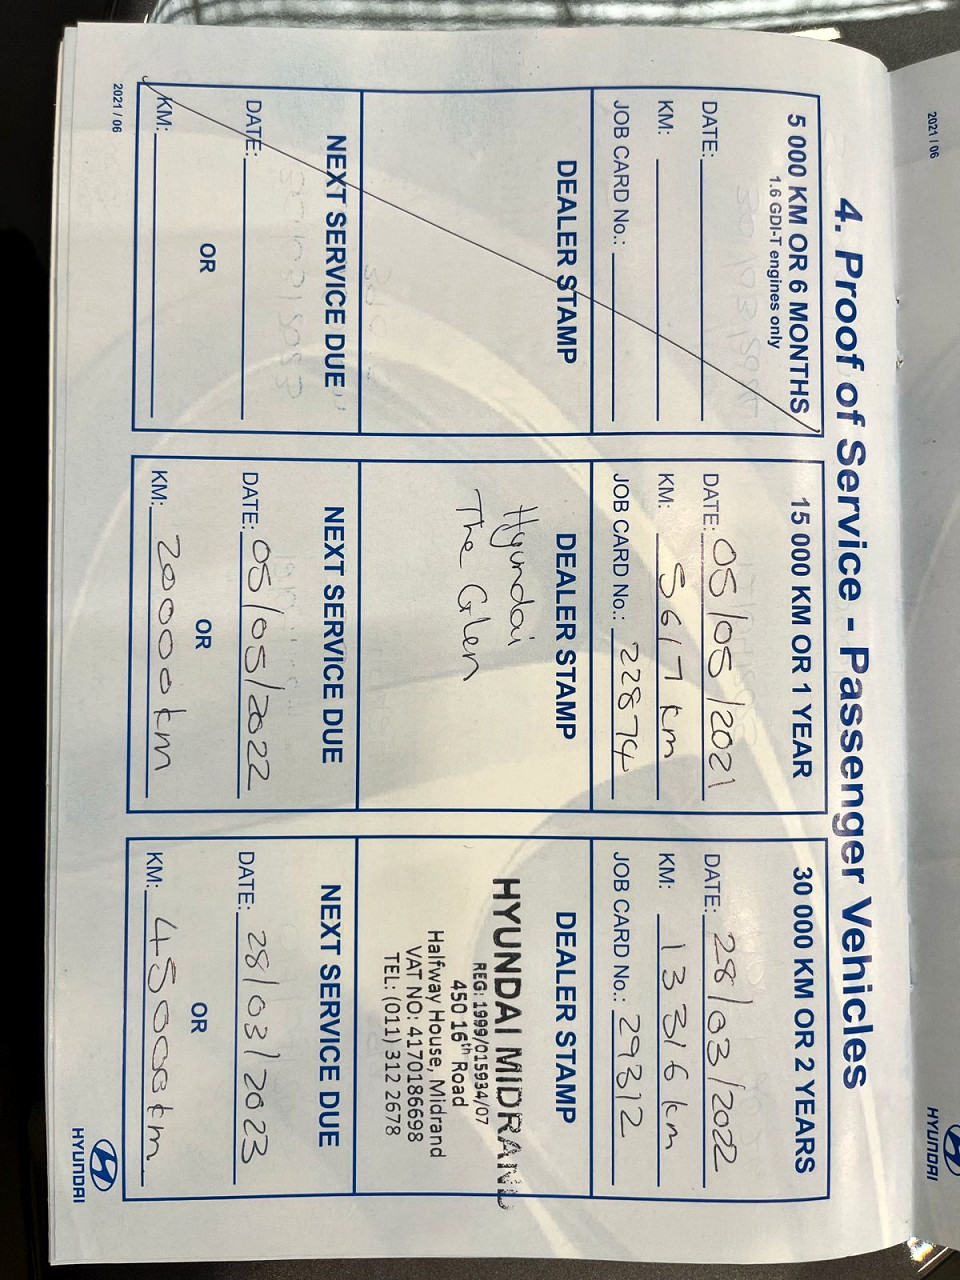 4. Proof of Service - Passenger Vehicles
5 000 KM OR 6 MONTHS
1.6 GDI-T engines only
DATE:
KM:
JOB CARD No.:
DEALER STAMP
NEXT SERVICE DUE
DATE:
OR
KM:
15 000 KM OR 1 YEAR
DATE: 05/05/2021
KM: 5617 km
JOB CARD No.: 22874
DEALER STAMP
Hyundai
The Glen
NEXT SERVICE DUE
DATE: 05/05/2022
OR
KM: 20000 km
30 000 KM OR 2 YEARS
DATE: 28/03/2022
KM: 13316 km
JOB CARD No.: 29312
DEALER STAMP
HYUNDAI MIDRAND
REG: 1999/015934/07
450 16th Road
Halfway House, Midrand
VAT NO: 4170186698
TEL: (011) 312 2678
NEXT SERVICE DUE
DATE: 28/03/2023
OR
KM: 45000 km
2021 / 06
HYUNDAI
2021 / 06
HYUNDAI